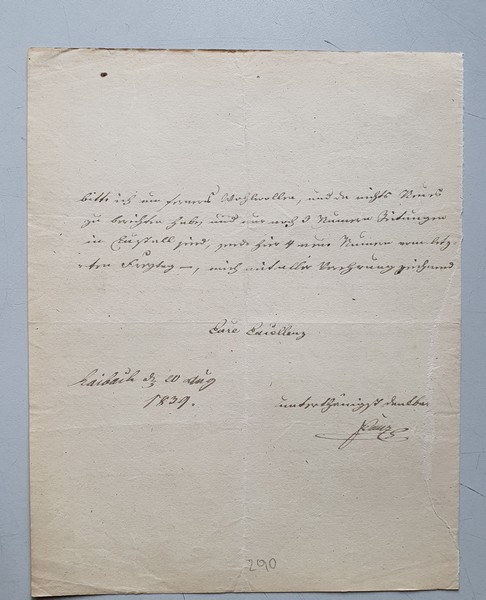 bitte ich um ferners Wohlwollen, und da nichts Neues
zu berichten habe, und nur noch 3 Numern Zeitungen
in sind, sende hier 4 neue Numern vom letz
ten Freytag —, mich mit aller Verehrung zeichnend
Eure Excellenz
Laibach d 20 Aug
1839.
unterthänigst dankbar
290